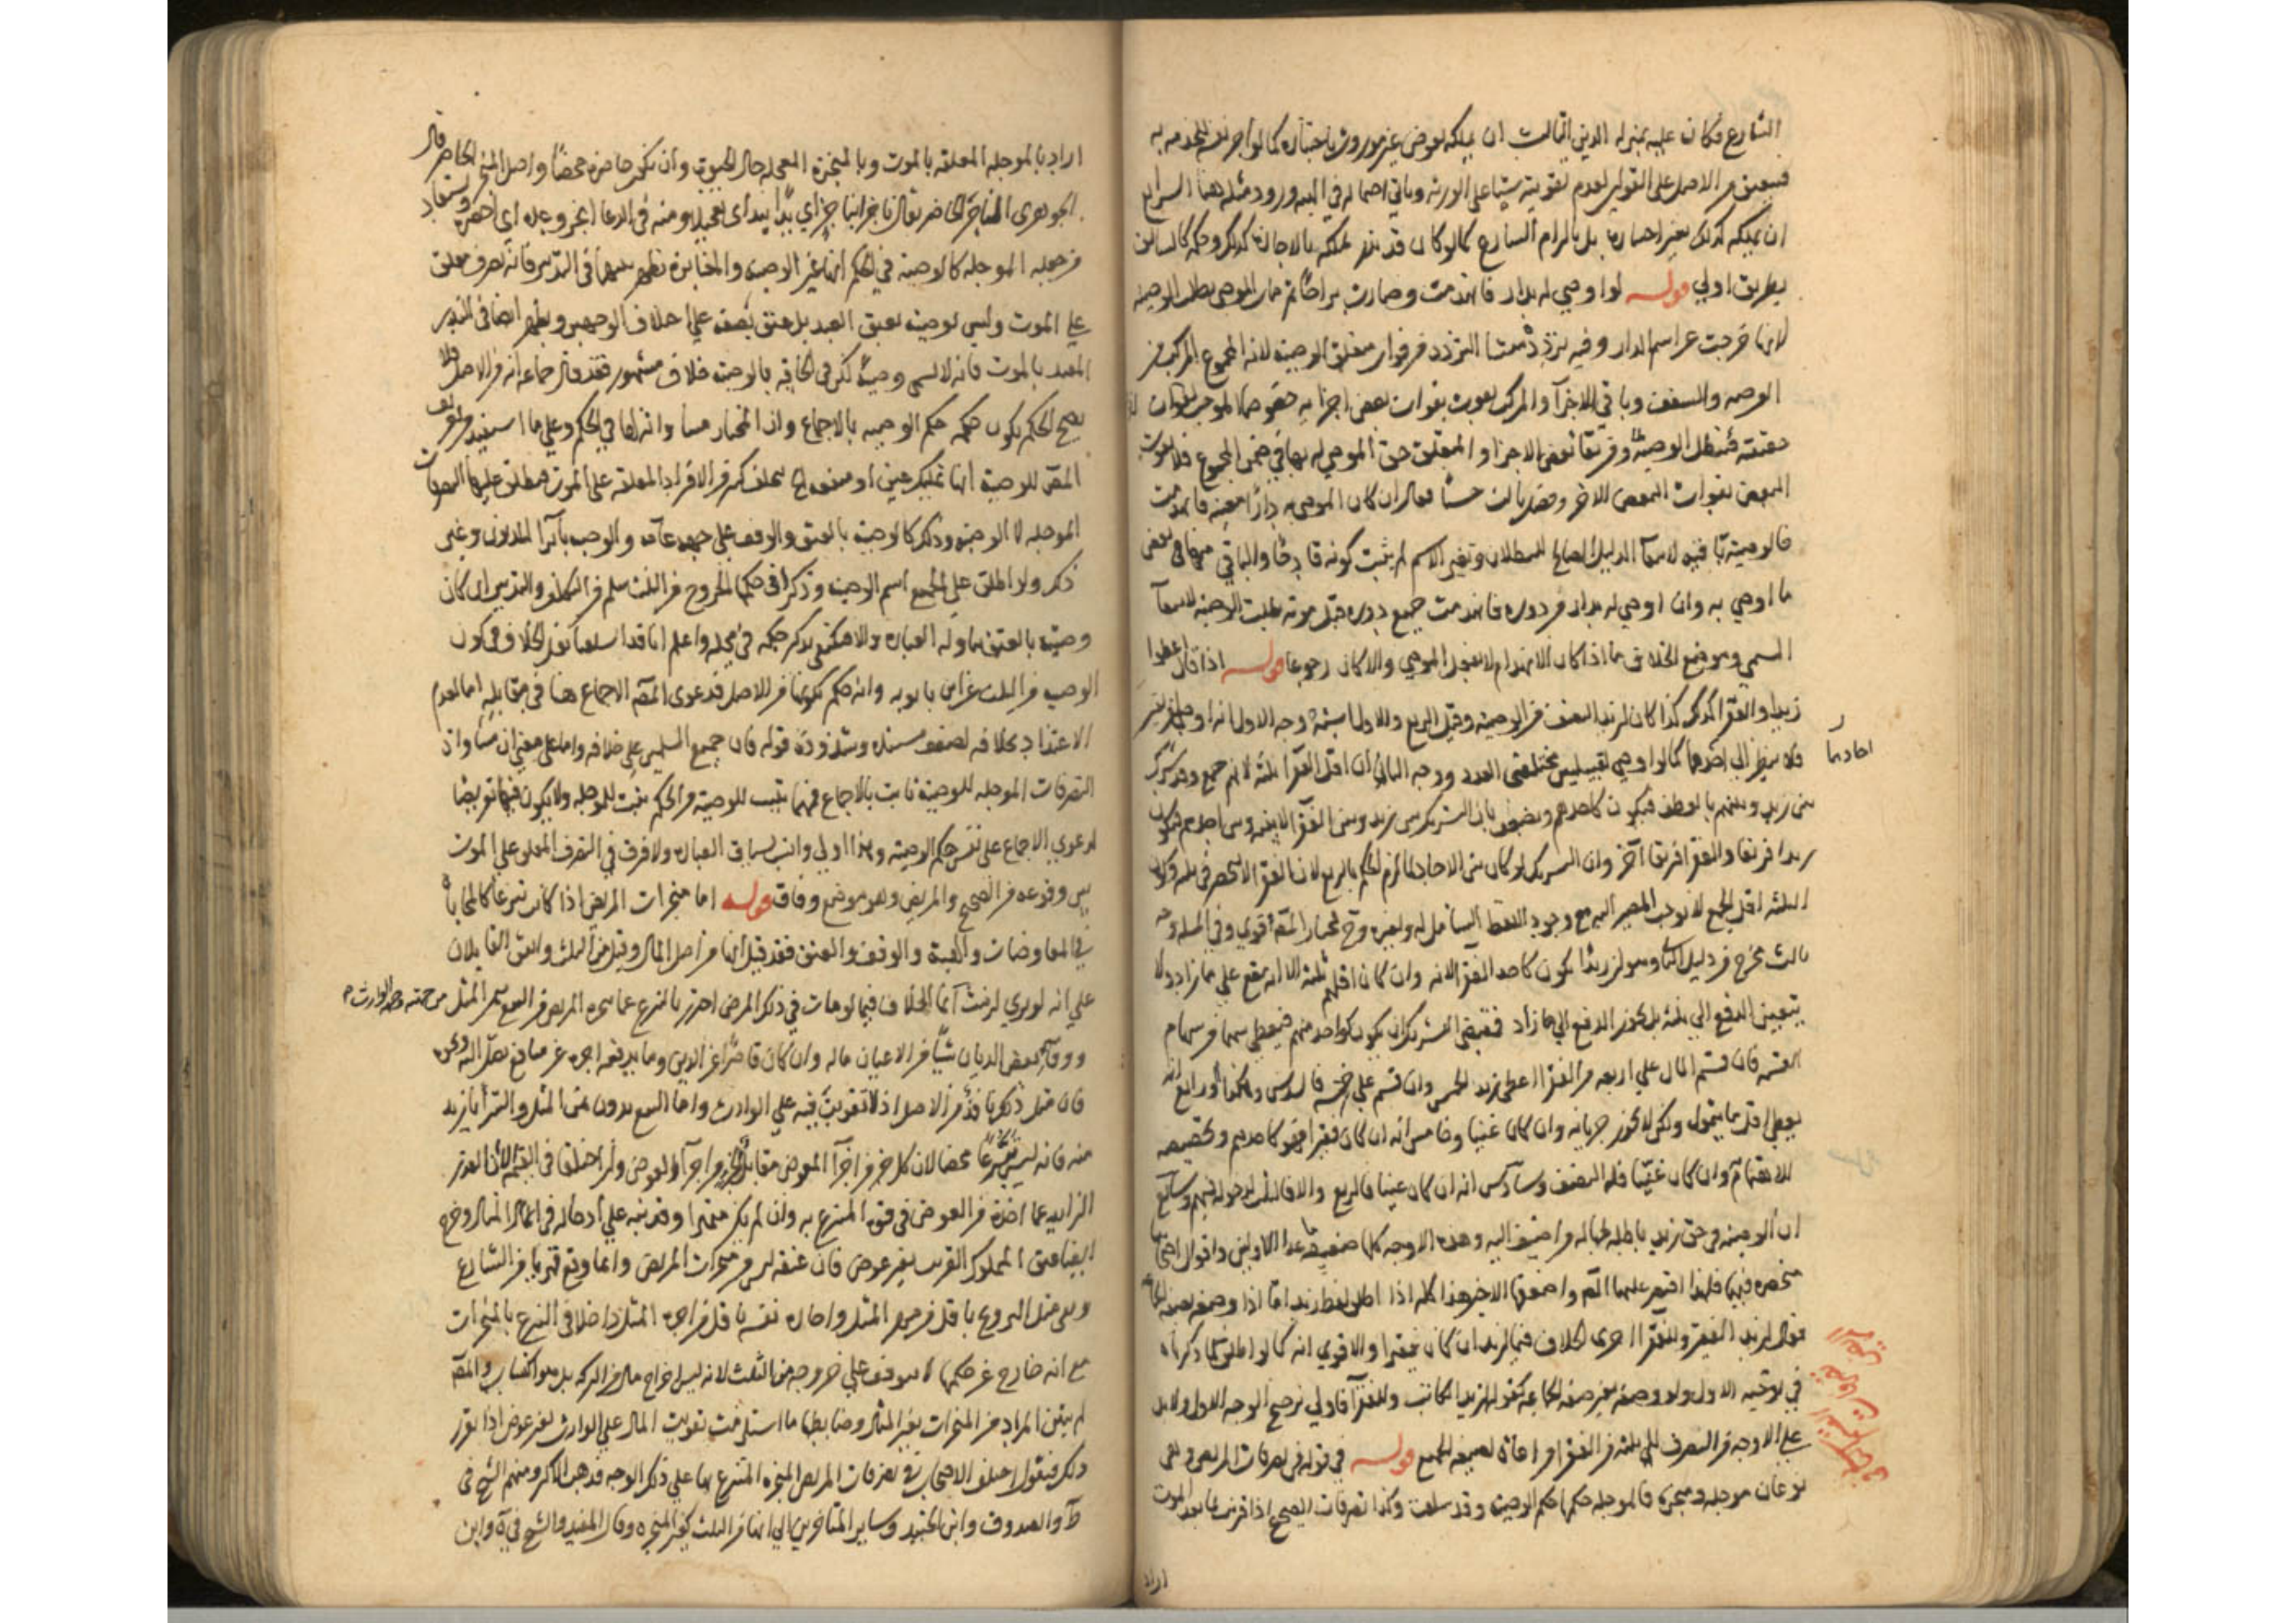 الشارع فكان عليه بمنزلة الدين الثالث ان يملكه بعوض غير موروث باختياره كما لو اجر نفسه للخدمة به
فيعتق من الاصل على القولين لعدم تفويته شيئا على الورثة وياتي احتماله في الهبة ورود مثله هنا الرابع
ان يملكه كذلك بغير اختياره بل بالزام الشارع كما لو كان قد نذر تملكه بالاجارة كذلك وحكمه كالسابق
بطريق اولى قوله لو اوصى له بدار فانهدمت وصارت براحا ثم مات الموصي بطلت الوصية
لانها خرجت عن اسم الدار وفيه تردد منشا التردد من فوات متعلق الوصية لانه المجموع المركب من
العرصة والسقف وباقي الاجزاء والمركب يفوت بفوات بعض اجزائه
حقيقته فتبطل الوصية ومن بقاء بعض الاجزاء والمتعلق حق الموصى له بها في ضمن المجموع فلا يفوت
البعض بفوات البعض الاخر وفصل ثالث حسنا فقال ان كان الموصى به دارا معينة فانهدمت
فالوصية باقية لانتفاء الدليل الصالح للبطلان وتغير الاسم لم يثبت كونه قادحا والباقي منها هي بعض
ما اوصى به وان اوصى له بدار من دوره فانهدمت جميع دوره قبل موته بطلت الوصية لانتفاء
المسمى وموضع الخلاف ما اذا كان الانهدام لا بفعل الموصي والا كان رجوعا قوله اذا قال اعطوا
زيدا والفقراء كذا كان لزيد النصف من الوصية وقيل الربع والاول اشبه وجه الاول انه اوصى لفريقين
فلا ينظر الى احادهما كما لو اوصى لقبيلتين مختلفتي العدد ووجه الثاني ان اقل الفقراء ثلثة لانه جمع وقد شرك
بين زيد وبينهم بالعطف فيكون كاحدهم ويضعف بان التشريك بين زيد وبين الفقراء لا بينه وبين احدهم فيكون
زيد فريقا والفقراء فريقا آخر وان التشريك لو كان بين الاحاد لما لزم الحكم بالربع لان الفقراء لا ينحصر في ثلثة وكون
الثلثة اقل الجمع لا يوجب المصير اليه مع وجود اللفظ الشامل له ولغيره وح فمختار المص اقوى وفي المسالة وجه
ثالث مخرج من دليل الثاني وهو ان زيدا يكون كاحد الفقراء لانه وان كان اقلهم ثلثة الا انه يقع على ما زاد ولا
يتعين الدفع الى ثلثة بل يجوز الدفع الى ما زاد فمقتضى التشريك ان يكون كواحد منهم فيعطى سهما من سهام
القسمة فان قسم المال على اربعة من الفقراء اعطى زيد الخمس وان قسم على خمسة فالسدس وهكذا ورابع انه
يعطى اقل ما يتمول ولكن لا يجوز حرمانه وان كان غنيا وخامس انه ان كان فقيرا فهو كاحدهم وتخصيصه
للاهتمام وان كان غنيا فله النصف وسادس انه ان كان غنيا فالربع والا فالثلث لدخوله فيهم وسابع
ان الوصية في حق زيد باطلة لجهالة ما اضيف اليه وهذه الاوجه كلها ضعيفة ما عدا الاولين واقوال اصحابنا
منحصرة فيهما فلهذا اقتصر عليهما المص واضعفها الاخير هذا كله اذا اطلق لفظ زيد اما اذا وصفه بصفة الجماعة
فقال لزيد الفقير وللفقراء جرى الخلاف فيما لزيد ان كان فقيرا والاقوى انه كما لو اطلق لما ذكرناه
في توجيه الاول ولو وصفه بغير صفة الجماعة كقوله لزيد الكاتب وللفقراء فاولى بترجيح الوجه الاول ولابد
على الاوجه من الصرف الى ثلثة من الفقراء مراعاة لصيغة الجمع قوله في تصرفات المريض وهي
نوعان موجلة ومنجزة فالموجلة حكمها حكم الوصية وقد سلفت وكذا تصرفات الصحيح اذا قرنت بما بعد الموت
احادهما
اراد
اراد بالموجلة المعلقة بالموت وبالمنجزة المعجلة حال الحيوة وان لم يكن حاضرة محضا واصل المنجز الحاضر قال
الجوهري الناجز الحاضر يقال ناجزا بناجز اي يدا بيد اي تعجيلا ومنه في الدعاء انجز وعده اي احضره ويستفاد
من جعله الموجلة كالوصية في الحكم انها غير الوصية والمغايرة تظهر بينهما في التدبير فانه تصرف معلق
على الموت وليس بوصية بعتق العبد بل عتق بصفة على اختلاف الوجهين ويظهر ايضا في النذر
المقيد بالموت فانه لا يسمى وصية لكن في الحاقه بالوصية خلاف مشهور فقد قال جماعة انه من الاصل فلا
يصح الحكم بكون حكمه حكم الوصية بالاجماع وان المختار مساواته لها في الحكم وعلى ما استفيد من تعريف
المص للوصية انها تمليك عين او منفعة يتخلف كثير من الافراد المعلقة على الموت فيطلق عليها التصرفات
الموجلة لا الوصية وذلك كالوصية بالعتق والوقف على جهة عامة والوصية بابراء المديون وغير
ذلك ولو اطلق على الجميع اسم الوصية وذكر ان حكمها الخروج من الثلث سلم من التكلف والتدبير ان كان
وصية بالعتق تناوله العبارة والا اكتفى بذكر حكمه في محله واعلم انا قد اسلفنا نقل الخلاف في كون
الوصية من الثلث عن ابن بابويه وانه حكم بكونها من الاصل فدعوى المص الاجماع هنا في مقابله اما لعدم
الاعتداد بخلافه لضعف مستنده وشذوذ قوله فان جميع المسلمين على خلافه واما على معنى ان مساواة
التصرفات الموجلة للوصية ثابت بالاجماع فمهما يثبت للوصية من الحكم يثبت للموجلة ولا يكون فيها تعرضا
لدعوى الاجماع على نفس حكم الوصية وهذا اولى وانسب بسياق العبارة ولا فرق في التصرف المعلق على الموت
بين وقوعه من الصحيح والمريض وهو موضع وفاق قوله اما منجزات المريض اذا كانت تبرعا كالمحاباة
في المعاوضات والهبة والوقف والعتق فقد قيل انها من اصل المال وقيل من الثلث واتفق القايلان
على انه لو بري لزمت انما الخلاف فيما لو مات في ذلك المرض احترز بالتبرع عما ينجزه المريض من البيع بثمن المثل
ووفاء بعض الديان شيئا من الاعيان ماله وان كان قاصرا عن الدين وما يدفعه اجرة عن منافع تصل اليه ونحوه
فان مثل ذلك نافذ من الاصل اذ لا تفويت فيه على الوارث واما البيع بدون ثمن المثل والشراء بازيد
منه فانه ليس تبرعا محضا لان كل جزء من اجزاء المعوض مقابل بجزء من اجزاء العوض وان اختلفا في القيمة الا ان القدر
الزايد عما اخذه من العوض في قوة المتبرع به وان لم يكن متميزا وقد نبه على ادخاله في المثال وخرج
ايضا عتق المملوك القريب بغير عوض فان عتقه ليس من منجزات المريض وانما وقع قهريا من الشارع
وبقي مثل التزويج باقل من مهر المثل واجارة نفسه باقل من اجرة المثل داخلا في التبرع بالمنجزات
مع انه خارج عن حكمها لا يتوقف على خروجه من الثلث لانه ليس اخراج مال من التركة بل هو اكتساب والمص
لم يبين المراد من المنجزات بغير المثال وضابطها ما استلزمت تفويت المال على الوارث بغير عوض اذا تقرر
ذلك فنقول اختلف الاصحاب في تصرفات المريض المنجزة المتبرع بها على ذلك الوجه فذهب الاكثر ومنهم الشيخ في
ط والصدوق وابن الجنيد وساير المتاخرين الى انها من الثلث كغير المنجزة وقال المفيد والشيخ في ية وابن